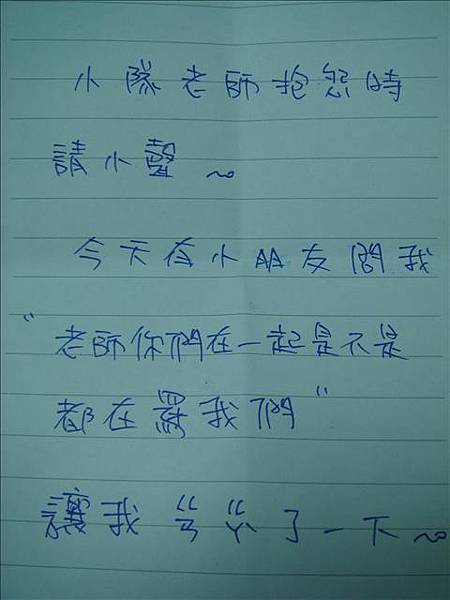 小隊老師抱怨時
請小聲~
今天有小朋友問我
"老師你們在一起是不是
都在罵我們"
讓我ㄍㄢㄍㄚˋ了一下~